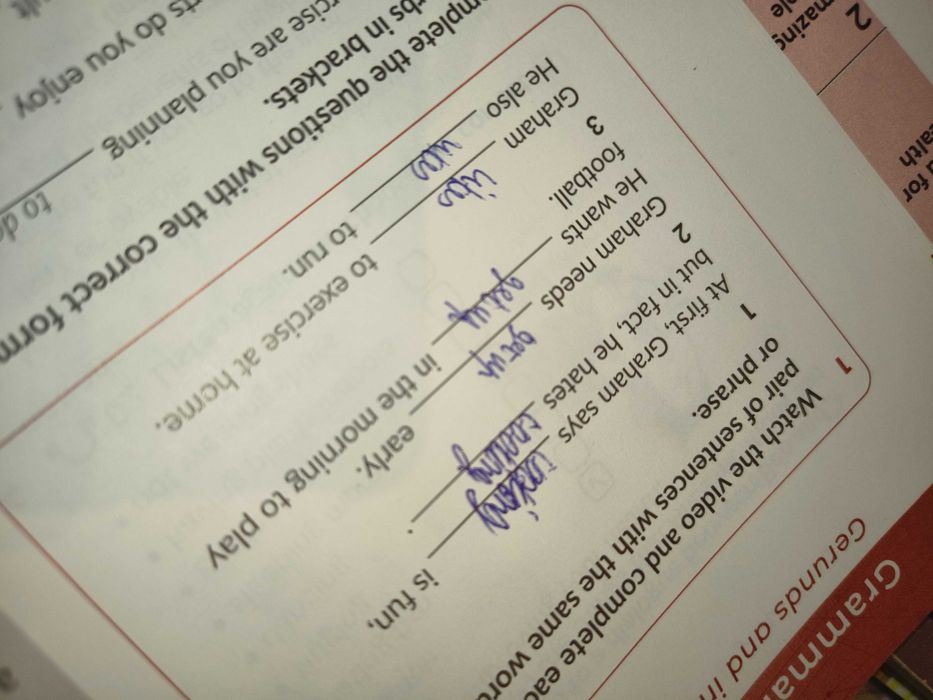 Gramma
Gerunds and in
1 Watch the video and complete eac
pair of sentences with the same word
or phrase.
1 At first, Graham says is fun,
but in fact, he hates .
2 Graham needs get up in the morning to play
football.
He wants get up early.
3 Graham likes to exercise at home.
He also likes to run.
mplete the questions with the correct form
rbs in brackets.
rcise are you planning to do
rts do you enjoy
2
mazing
ple
d for
ealth